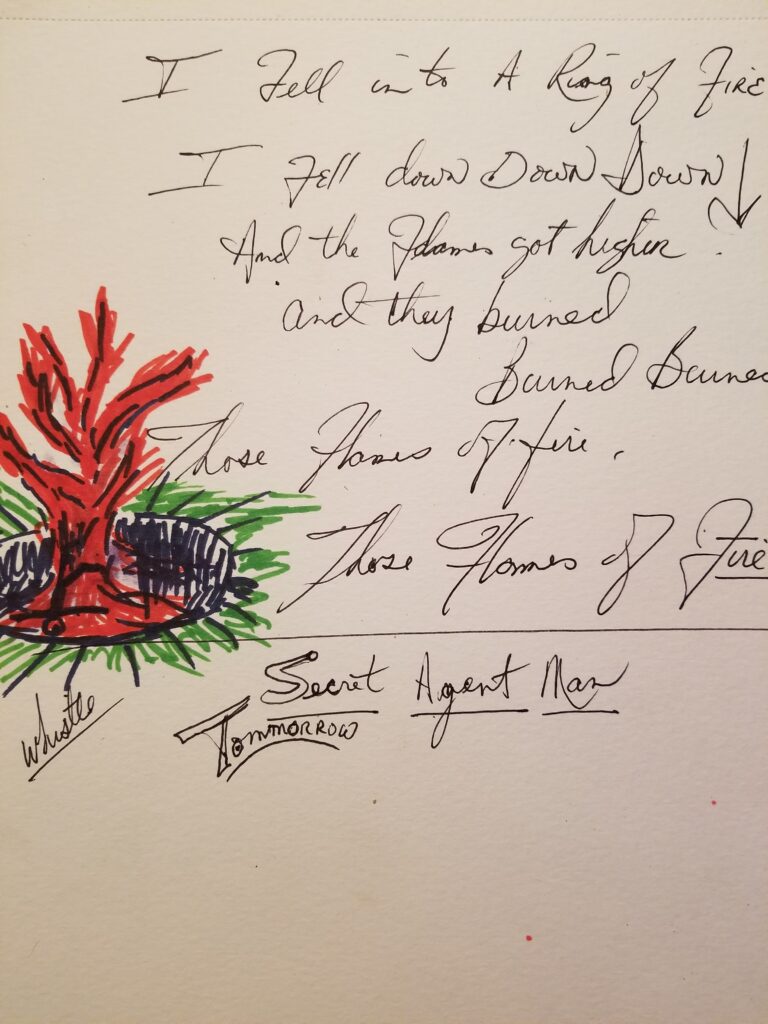 I Fell into A Ring of FIRE
I Fell down DOWN DOWN
And the Flames got higher.
and they burned
Burned Burned
Those Flames Of fire.
Those Flames of Fire
Secret Agent Man
Whistle
TOMMORROW